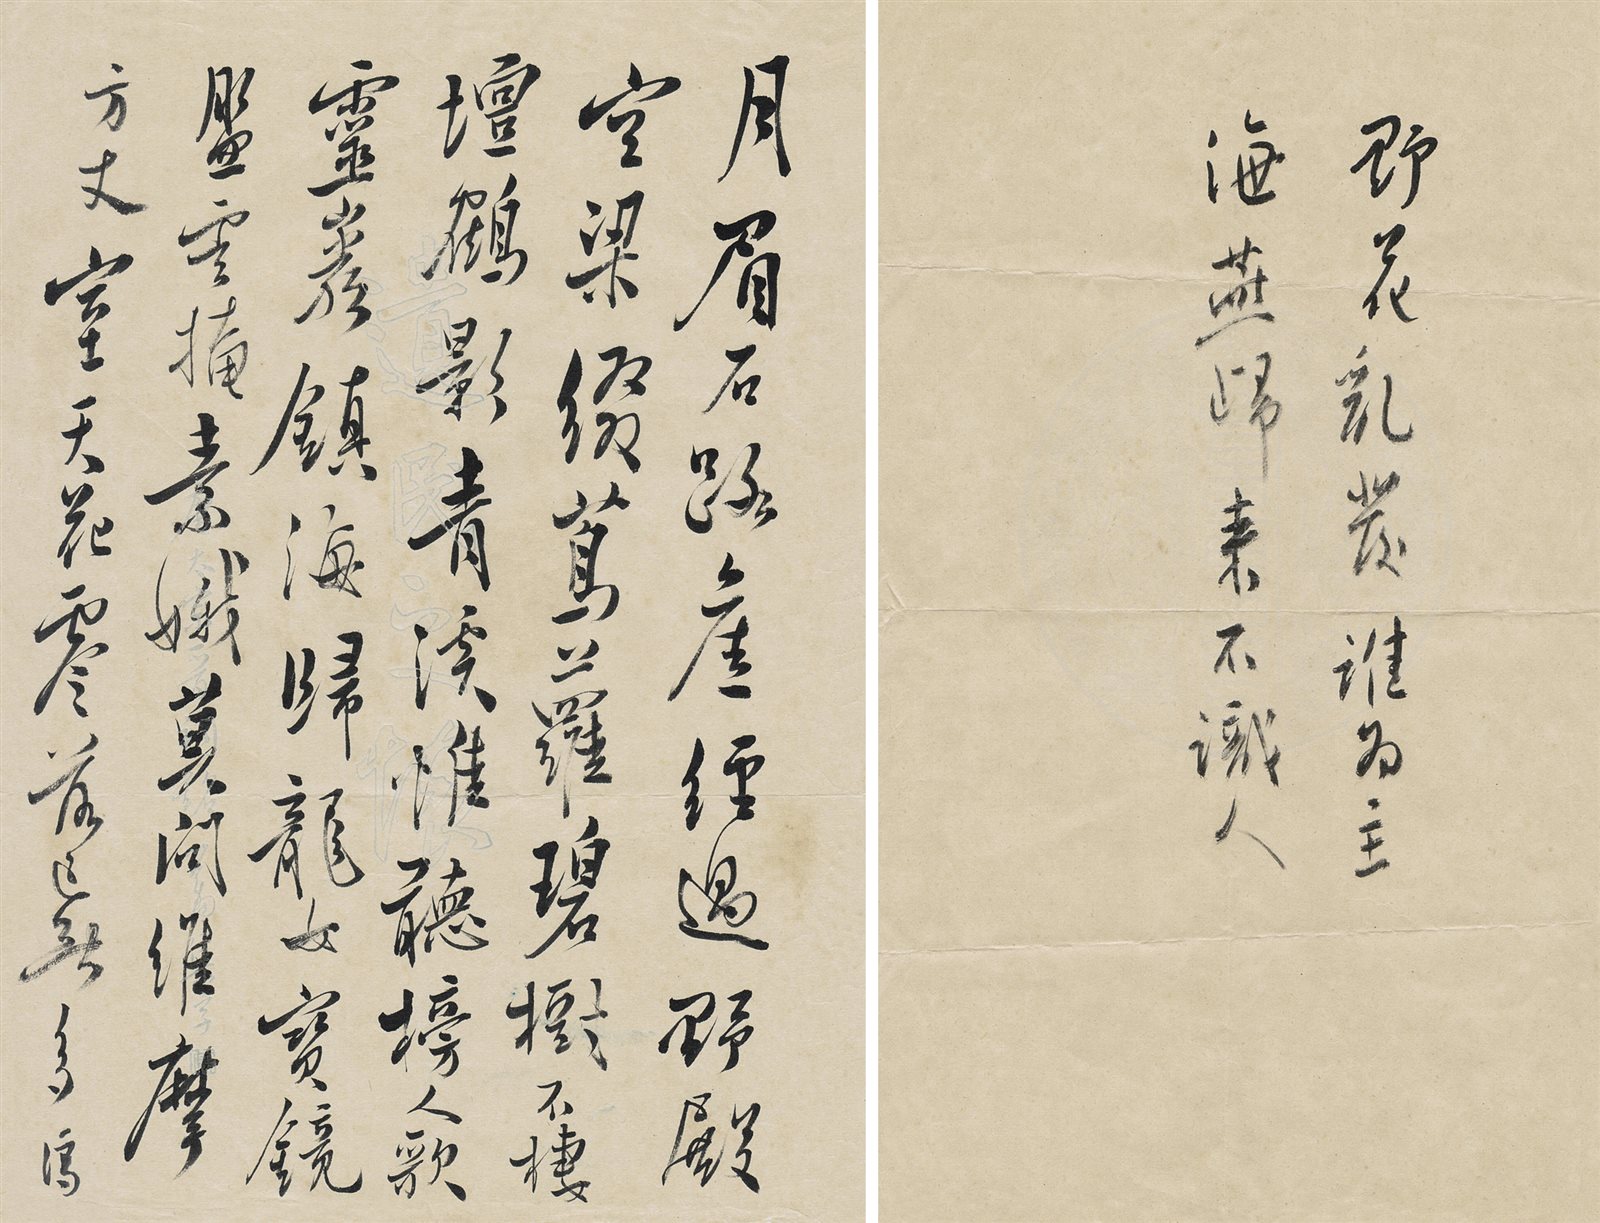 野花亂發誰為主
海燕歸來不識人
月眉石路經過野殿
空梁綴蔦蘿碧樹不棲
壇鶴影青溪惟聽榜人歌
靈巖鎮海歸龍女寶鏡
盤雲掩素娥莫問維摩
方丈室天花零落已無多